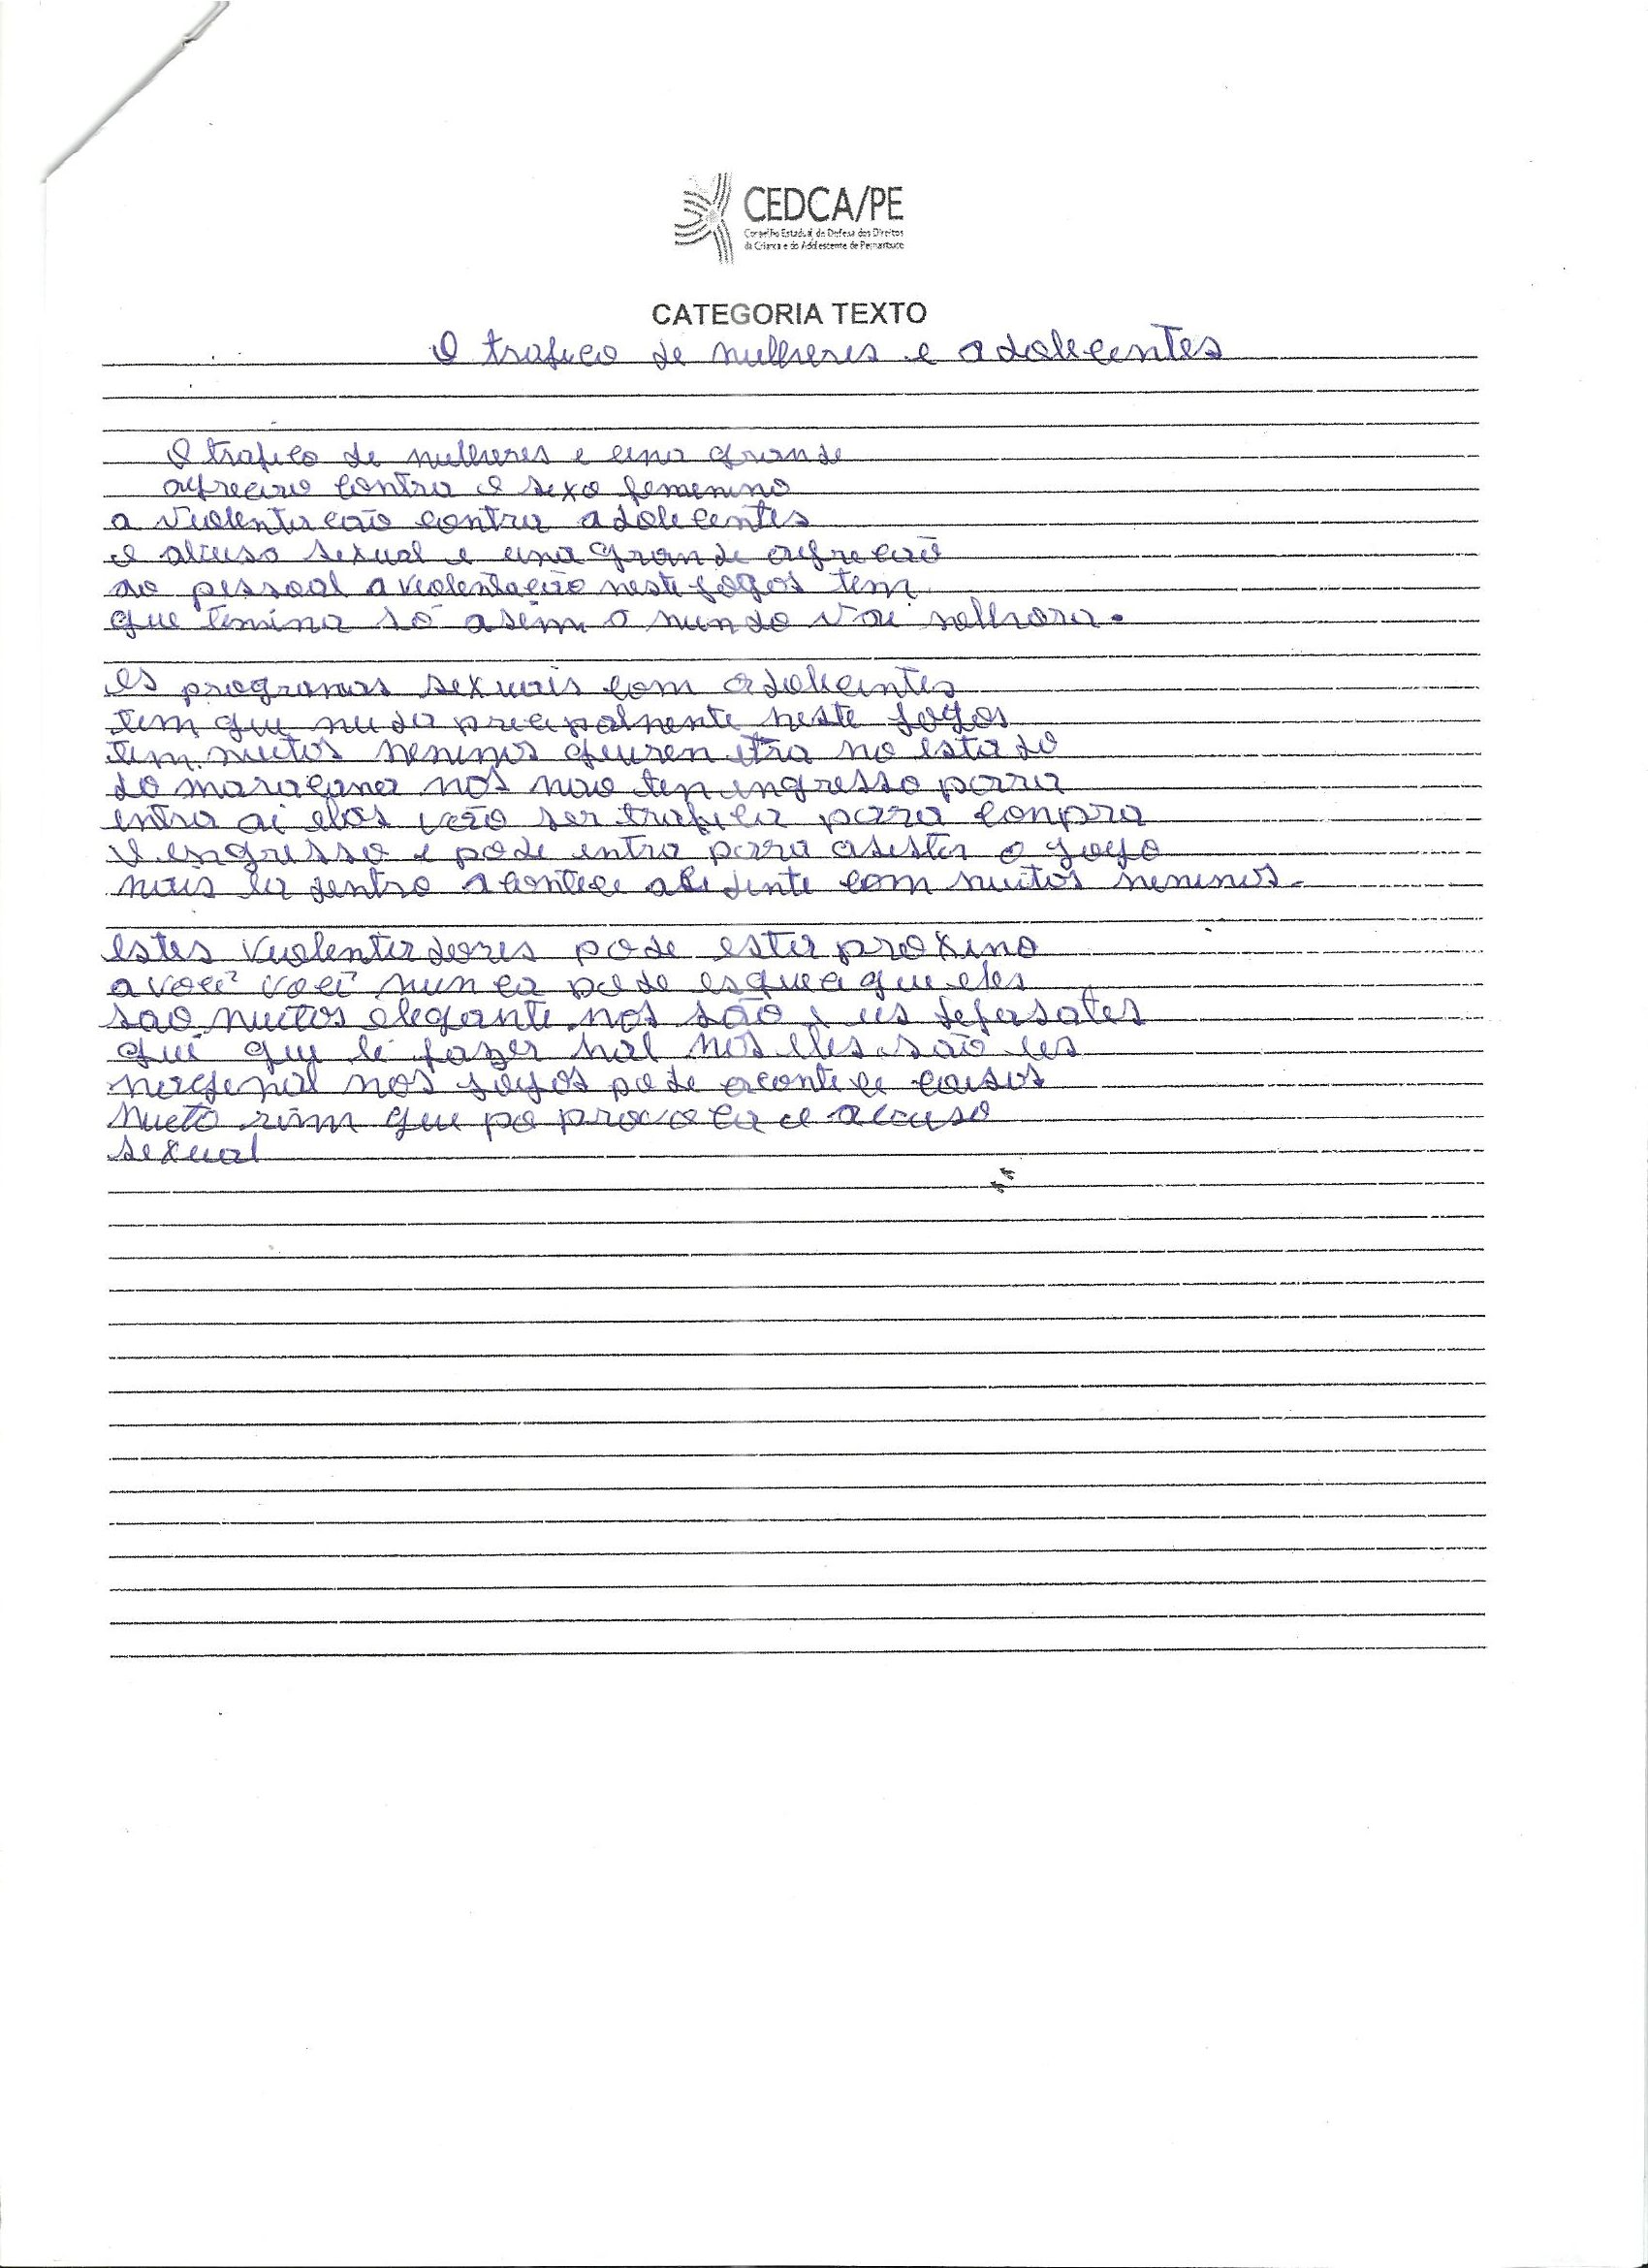 CEDCA/PE
Conselho Estadual de Defesa dos Direitos
da Criança e do Adolescente de Pernambuco
CATEGORIA TEXTO
O trafico de mulheres e adolecentes
O trafico de mulheres e uma grande
agrecão contra o sexo femenino
a violentacão contra adolecentes
o abuso sexual e uma grande agrecão
ao pessoal a violentacão neste jogos tem
que temina só asem o mundo vai melhora.
os programas sexuais com adolecentes
tem que muda precipalmente neste jogos
tem muitos meninos queren etra no estado
do maracana nos não ten ingresso parra
entra ai elos vão ser trafica parra conpra
o engresso e pode entra parra asester o jogo
mais la dentro acontece acedente com muitos meninos.
estes violentadores pode estar proximo
a você você nunca pode esquece que eles
são muitos elegante nos são us
que que li fazer mal nos eles são us
nos jogos pode acontece coisas
muito rim que po provoca o abuso
sexual